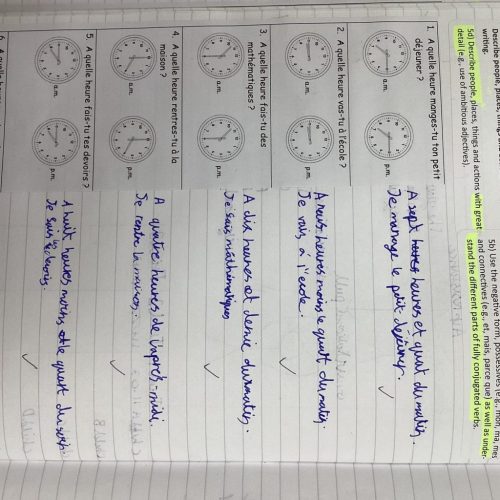 Describe people, places,
writing.
5d) Describe people, places, things and actions with great
detail (e.g., use of ambitious adjectives).
5b) Use the negative form, possessives (e.g., mon, ma, mes
and connectives (e.g., et, mais, parce que) as well as under-
stand the different parts of fully conjugated verbs.
1. A quelle heure manges-tu ton petit
déjeuner ?
a.m.
p.m.
A sept heures et quart du matin.
Je mange le petit déjeuner.
2. A quelle heure vas-tu à l'école ?
a.m.
p.m.
A neuf heures moins le quart du matin.
Je vais à l'école.
3. A quelle heure fais-tu des
mathématiques ?
a.m.
p.m.
A dix heures et demie du matin.
Je fais mathématiques
4. A quelle heure rentres-tu à la
maison ?
a.m.
p.m.
A quatre heures de l'après-midi.
Je rentre la maison.
5. A quelle heure fais-tu tes devoirs ?
a.m.
p.m.
A huit heures moins le quart du soir
Je fais devoirs.
6. A quelle heure